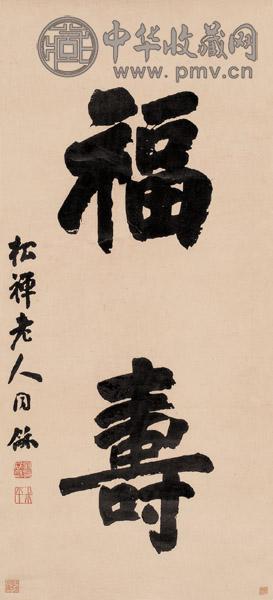 中华收藏网
www.pmv.cn
福壽
松禪老人同龢